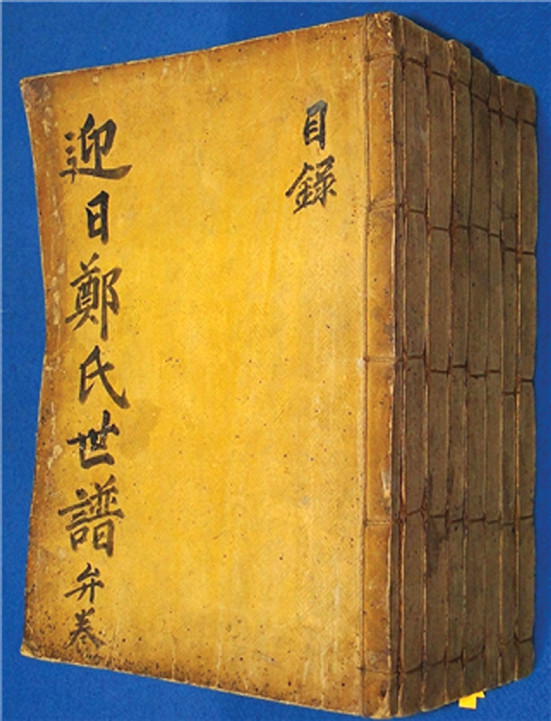 目錄
迎日鄭氏世譜弁卷